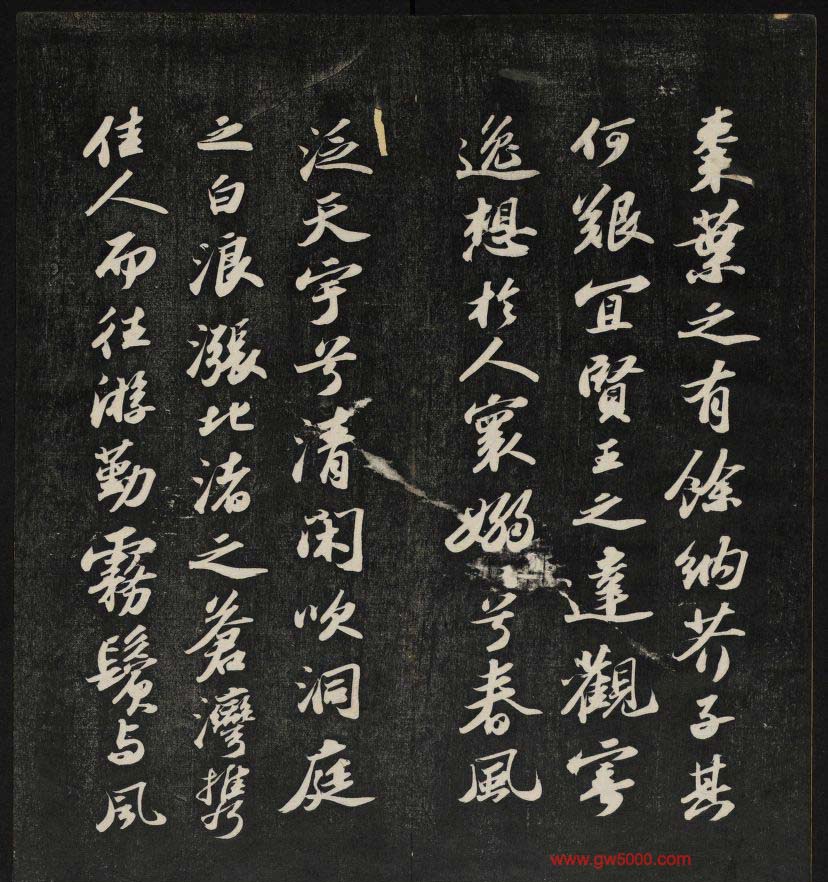 棗葉之有餘納芥子其
何艱宜賢王之達觀寄
逸想於人寰嫋兮春風
泛天宇兮清閑吹洞庭
之白浪漲北渚之蒼灣携
佳人而往游勤霧鬢与風
www.gw5000.com